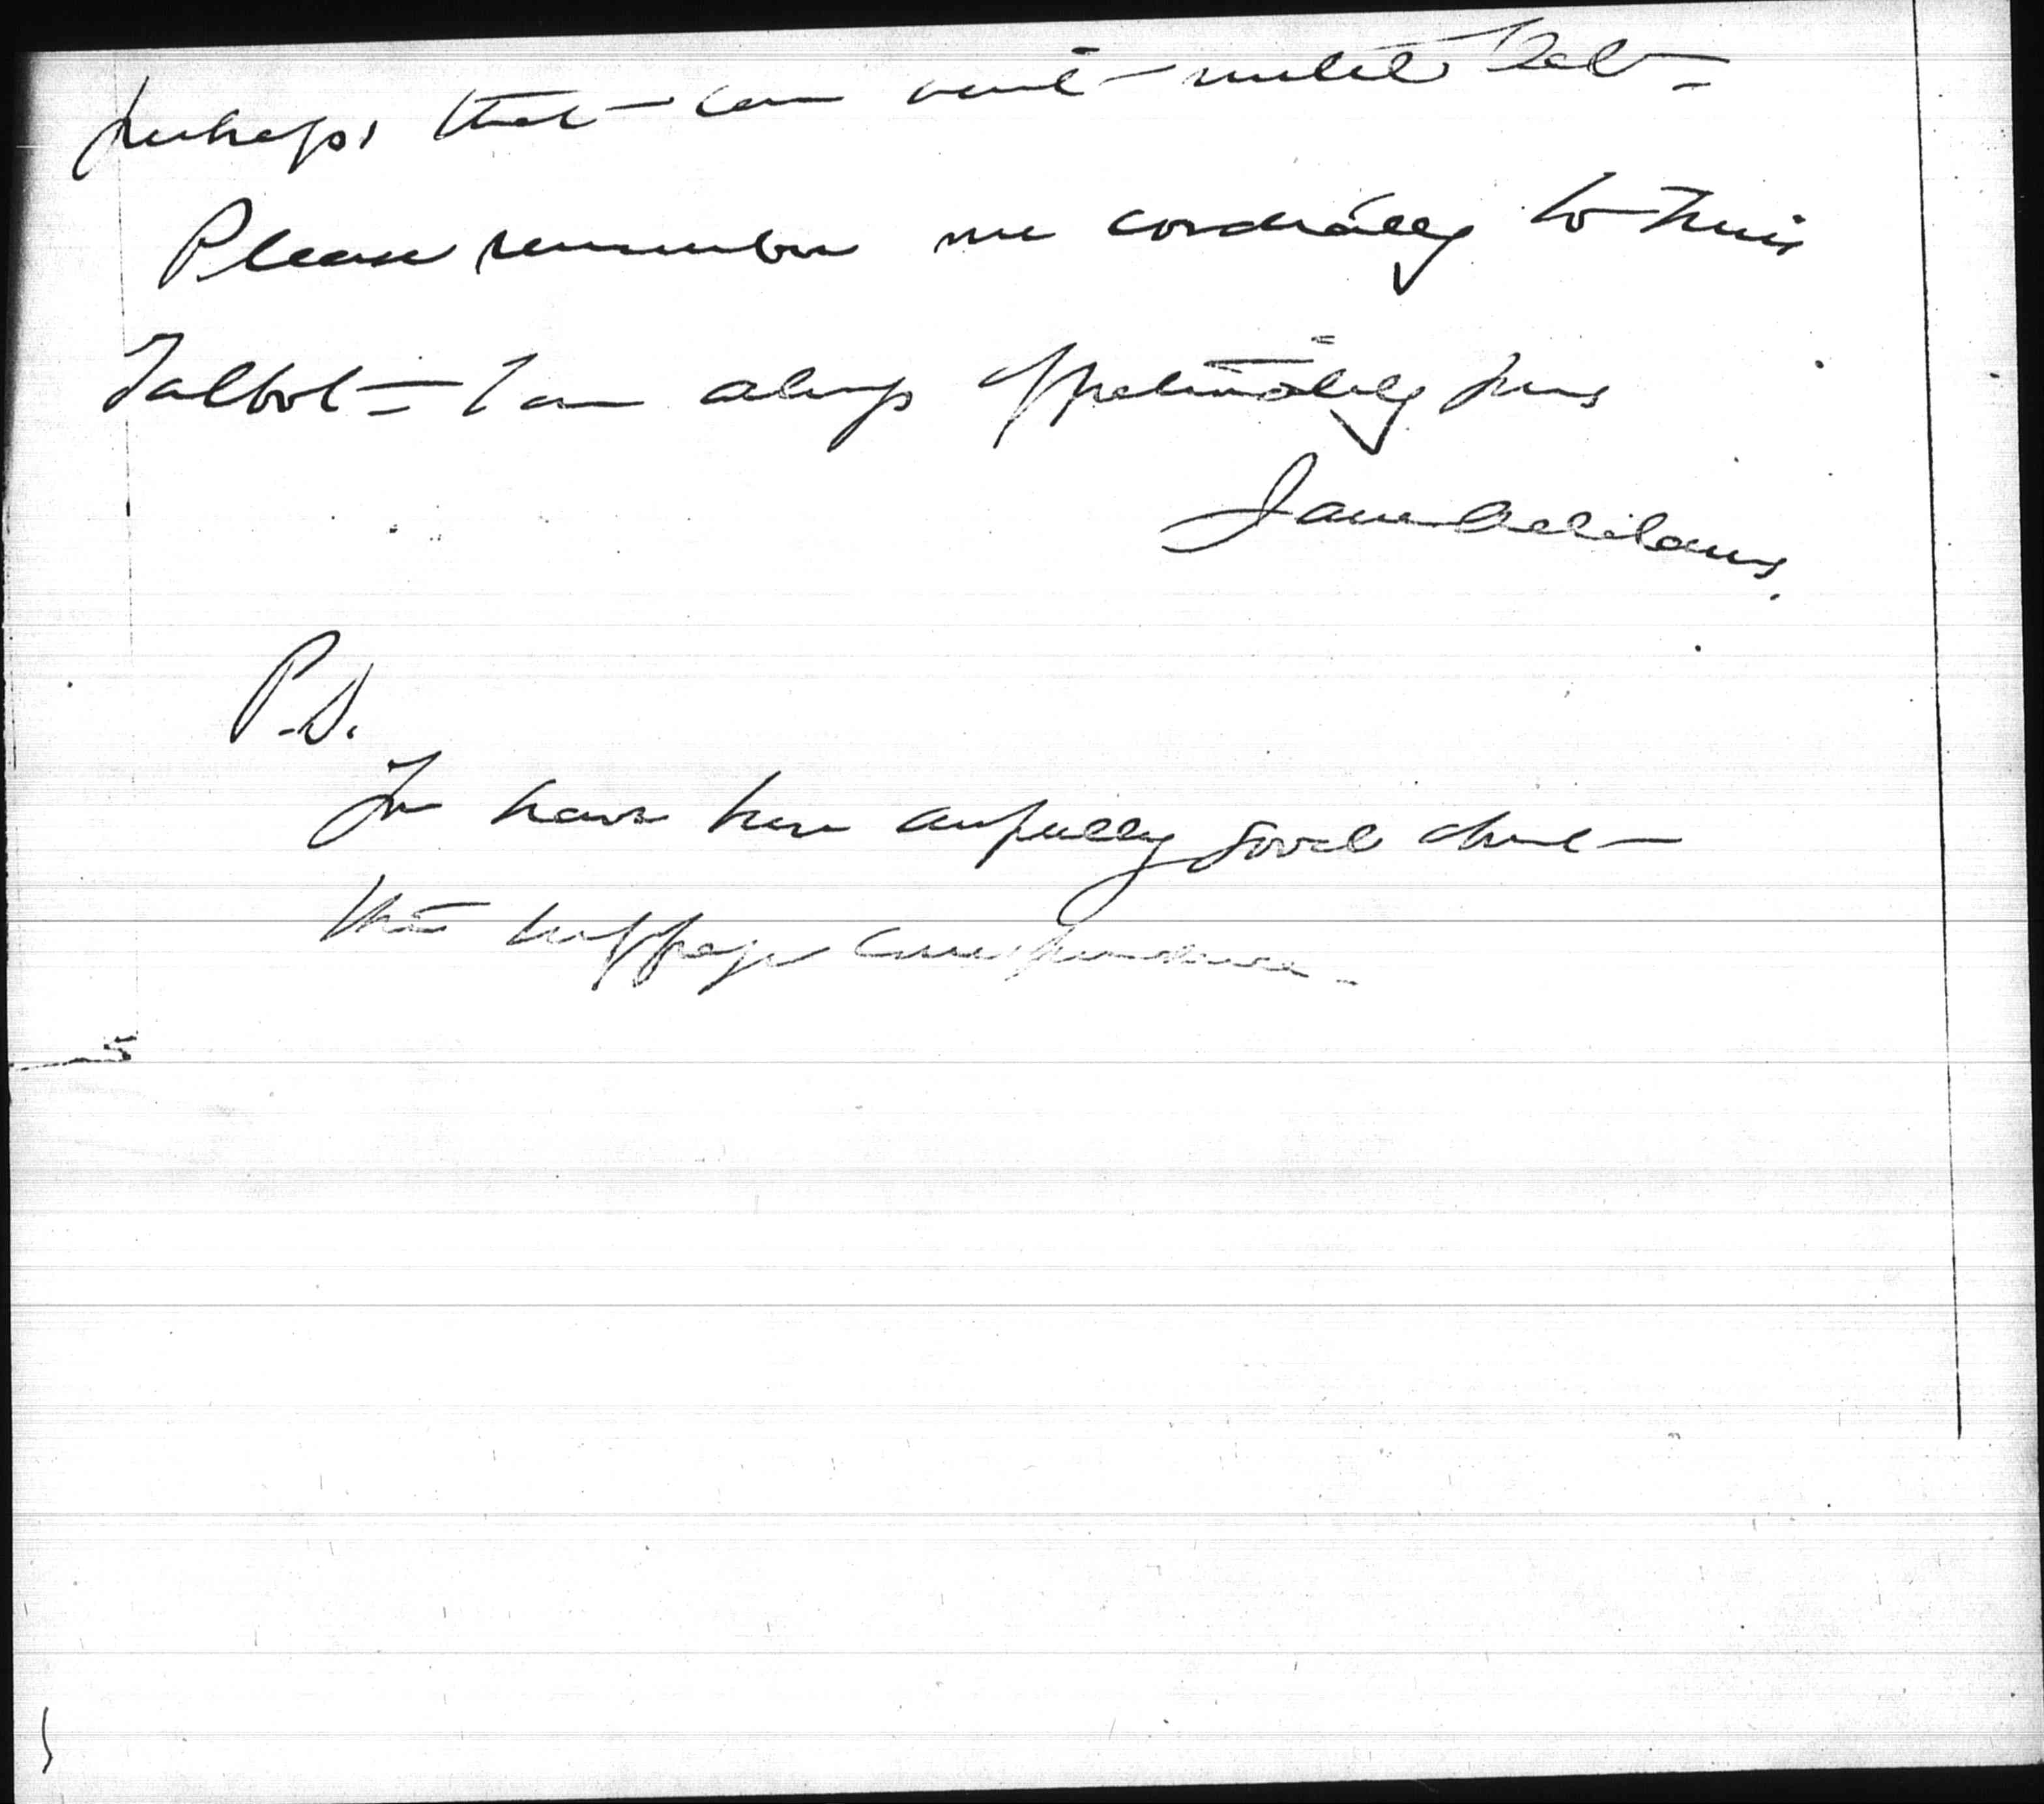 perhaps that can wait until Feb —
Please remember me cordially to Miss
Talbot — I am always affectionately yours
Jane Addams.
P.S.
You have been awfully good about
the suffrage correspondence —